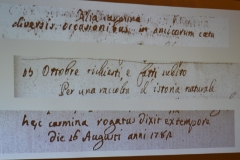 Alia carmina
diversis occasionibus in amicorum cœtu
Ottobre richiesti, e fatti subito
Per una raccolta di istoria naturale
hæc carmina rogatus dixit extempore
die 16 Augusti anni 1784